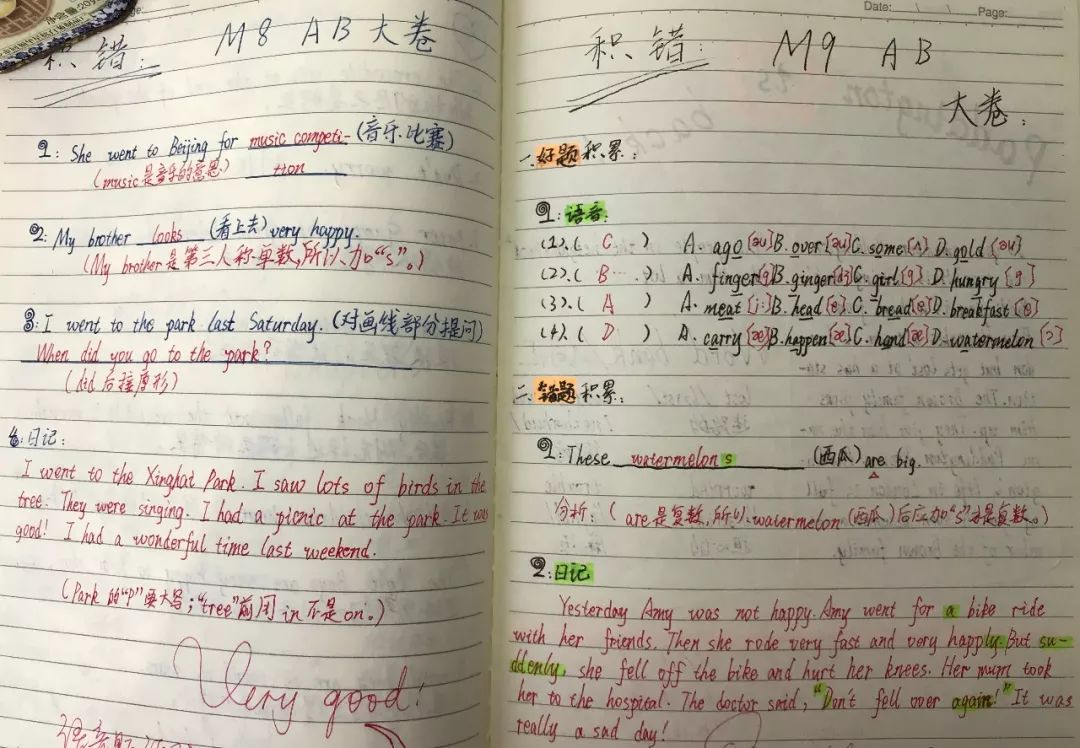 积错: M8 AB大卷
1: She went to Beijing for music competi-(音乐比赛)
(music是音乐的意思) tion
2: My brother looks (看上去) very happy.
(My brother是第三人称单数,所以加“s”。)
3: I went to the park last Saturday. (对画线部分提问)
When did you go to the park?
(did后接原形)
4: 日记:
I went to the Xinghai Park. I saw lots of birds in the
tree. They were singing. I had a picnic at the park. It was
good! I had a wonderful time last weekend.
(Park的“P”要大写;“tree”前用in不是on。)
Very good!
Date: Page:
积错: M9 AB
大卷:
一.好题积累:
1: 语音:
(1).( C ) A. ago [əu] B. over [əu] C. some [ʌ] D. gold [əu]
(2).( B ) A. finger [g] B. ginger [dʒ] C. girl [g] D. hungry [g]
(3).( A ) A. meat [i:] B. head [e] C. bread [e] D. breakfast [e]
(4).( D ) A. carry [æ] B. happen [æ] C. hand [æ] D. watermelon [ɔ]
二.错题积累:
1: These watermelons (西瓜) are big.
分析:( are是复数,所以watermelon(西瓜)后应加“s”才是复数。)
2: 日记
Yesterday Amy was not happy. Amy went for a bike ride
with her friends. Then she rode very fast and very happly. But su-
ddenly, she fell off the bike and hurt her knees. Her mum took
her to the hospital. The doctor said, “Don't fell over again!” It was
really a sad day!